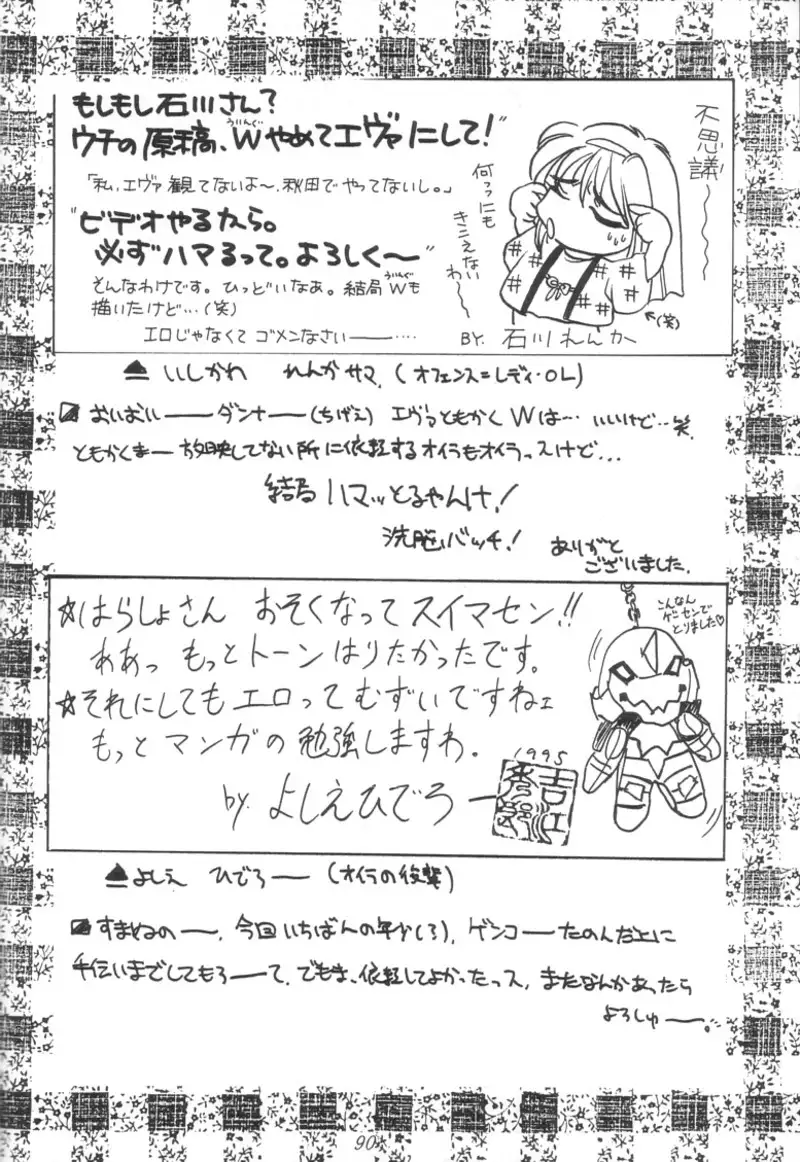 もしもし石川さん?
ウチの原稿、Wやめてエヴァにして!"
ういんぐ
「私、エヴァ観てないよ〜、秋田でやってないし。」
"ビデオやるから。
必ずハマるって。よろしく〜"
そんなわけです。ひっどいなあ。結局Wも
ういんぐ
描いたけど…(笑)
エロじゃなくてゴメンなさい——……
不思議〜〜
何っにも
きこえない
わ〜〜
(笑)
BY. 石川れんか
▲ いしかわ れんかサマ.(オフェンス=レディ・OL)
おいおい——ダンナ——(ちげえ) エヴァともかくWは… いいけど…笑.
ともかくまー 放映してない所に依頼するオイラもオイラっスけど…
結局ハマッとるやんけ!
洗脳バッチ!
ありがと
ございました.
☆はらしょさん おそくなってスイマセン!!
ああっ もっとトーンはりたかったです。
☆それにしてもエロってむずいですねェ
もっとマンガの勉強しますわ.
by. よしえひでろー
1995
こんなん
ゲーセンで
とりました♡
▲よしえ ひでろー (オイラの後輩)
すまぬのー, 今回いちばんの年少(ろ), ゲンコーたのんだ上に
手伝いまでしてもろーて, でもま、依頼してよかったっス, またなんかあったら
よろしゅー。
90